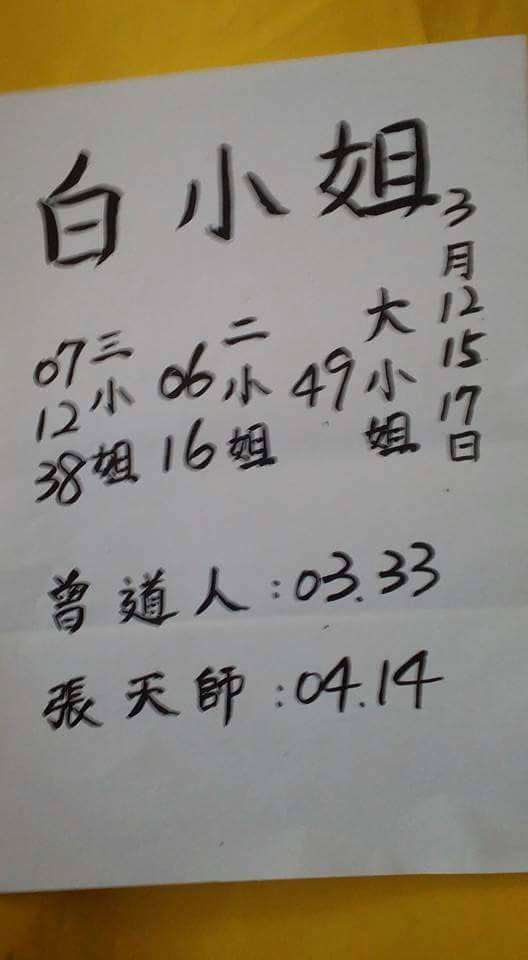 白小姐
3月12 15 17日
大小姐
49
二小姐
06
16
三小姐
07
12
38
曾道人:03.33
張天師:04.14